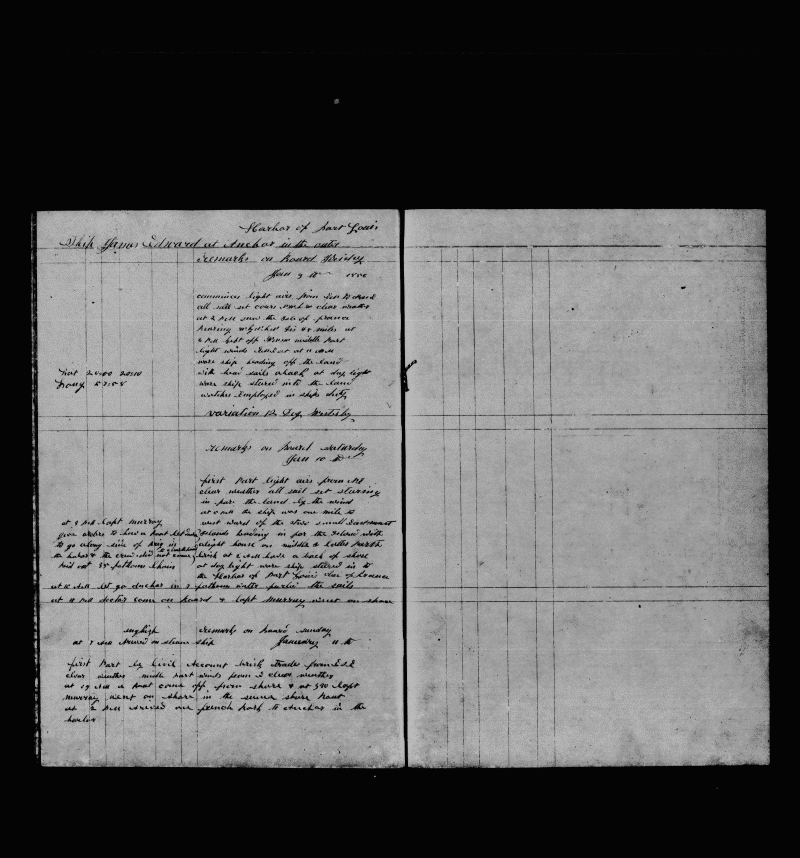 Harbor of Port Louis
Ship James Edward at Anchor in the outer
Remarks on Board Friday
Jan 9 th
commences light airs from
all sail set clear weather
at 2 PM saw the Isle of france
bearing Dis 48 miles at
middle Part
light winds at 11
wore ship heading off the land
with head sails aback at day light
wore ship stered into the land
watches Employed in ships duty
Lat 20:00 20:10
Long 57:58
variation 12 Deg Westerly
remarks on board saturday
Jan 10 th
first Part light airs from
clear weather all sail set stearing
in for the land by the wind
at the ship was one mile to
west ward of the small Easternmost
Islands heading in for the Island with
light house on middle & latter Parts
brick at 2 AM have a tack of shore
at day light wore ship stered in to
the Harbor of Port Louis Isle of france
at 9 AM Capt Murray
give orders to have a boat let down
to go along side of brig in
the harbor & the crew did not come
Paid out 35 fathoms chain
at 10 AM let go anchor in fathom water furled the sails
at 11 AM doctor come on board & Capt Murray went on shore
english remarks on board sunday
at 7 AM Arived on steam ship January 11 th
first Part by Civil Account brick trades from ESE
clear weather midle part winds from E clear weather
at AM a boat come off from shore & at Capt
Murray went on shore in the same shore boat
at 2 PM Arived one french bark to Anchor in the
harbor